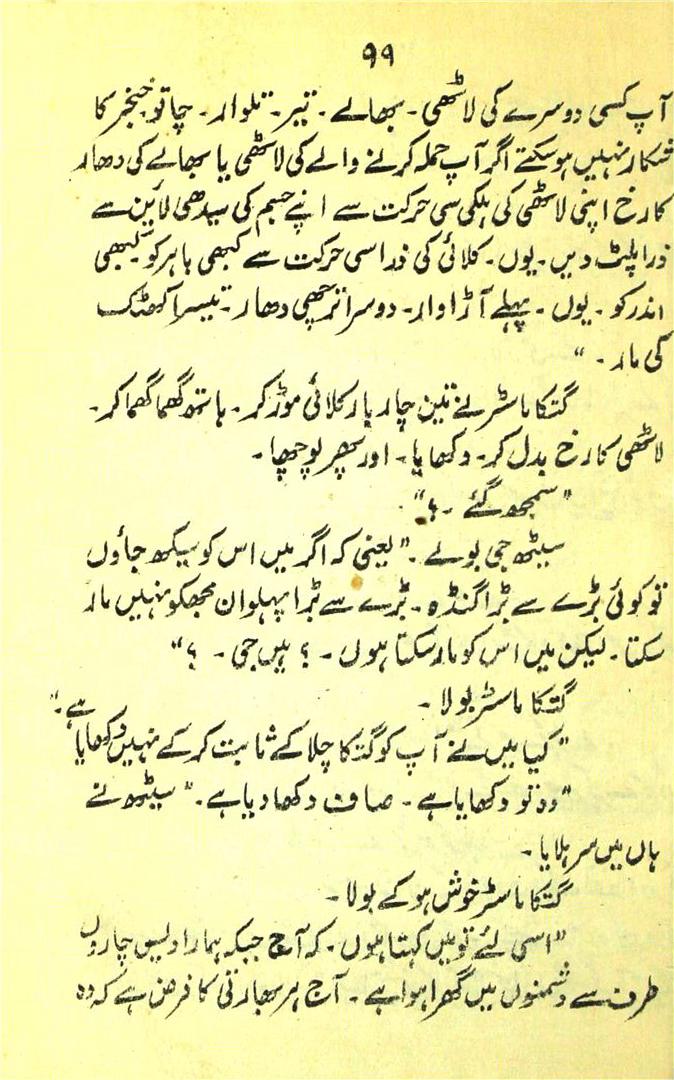 ۹۹
آپ کسی دوسرے کی لاٹھی۔ بھالے۔ تیر۔ تلوار۔ چاقو۔ خنجر کا
شکار نہیں ہو سکتے اگر آپ حملہ کرنے والے کی لاٹھی یا بھالے کی دھار
کا رخ اپنی لاٹھی کی ہلکی سی حرکت سے اپنے جسم کی سیدھی لائین سے
ذرا پلٹ دیں۔ یوں۔ کلائی کی ذرا سی حرکت سے کبھی باہر کو کبھی
اندر کو۔ یوں۔ پہلے آڑا وار۔ دوسرا ترچھی دھار۔ تیسرا کھٹک
کی مار۔ "
گتکا ماسٹر نے تین چار بار کلائی موڑ کر۔ ہاتھ گھما گھما کر۔
لاٹھی کا رخ بدل کر۔ دکھایا۔ اور پھر پوچھا۔
"سمجھ گئے ۔؟"
سیٹھ جی بولے ۔ "یعنی کہ اگر میں اس کو سیکھ جاؤں
تو کوئی بڑے سے بڑا گنڈہ۔ بڑے سے بڑا پہلوان مجھ کو نہیں مار
سکتا۔ لیکن میں اس کو مار سکتا ہوں۔ ؟ ہیں جی۔ ؟"
گتکا ماسٹر بولا ۔
"کیا میں نے آپ کو گتکا چلا کے ثابت کر کے نہیں دکھایا ہے۔"
"وہ تو دکھایا ہے۔ صاف دکھا دیا ہے۔" سیٹھ نے
ہاں میں سر ہلایا۔
گتکا ماسٹر خوش ہو کے بولا ۔
"اسی لئے تو میں کہتا ہوں۔ کہ آج جبکہ ہمارا دیس چاروں
طرف سے دشمنوں میں گھرا ہوا ہے۔ آج ہر بھارتی کا فرض ہے کہ وہ